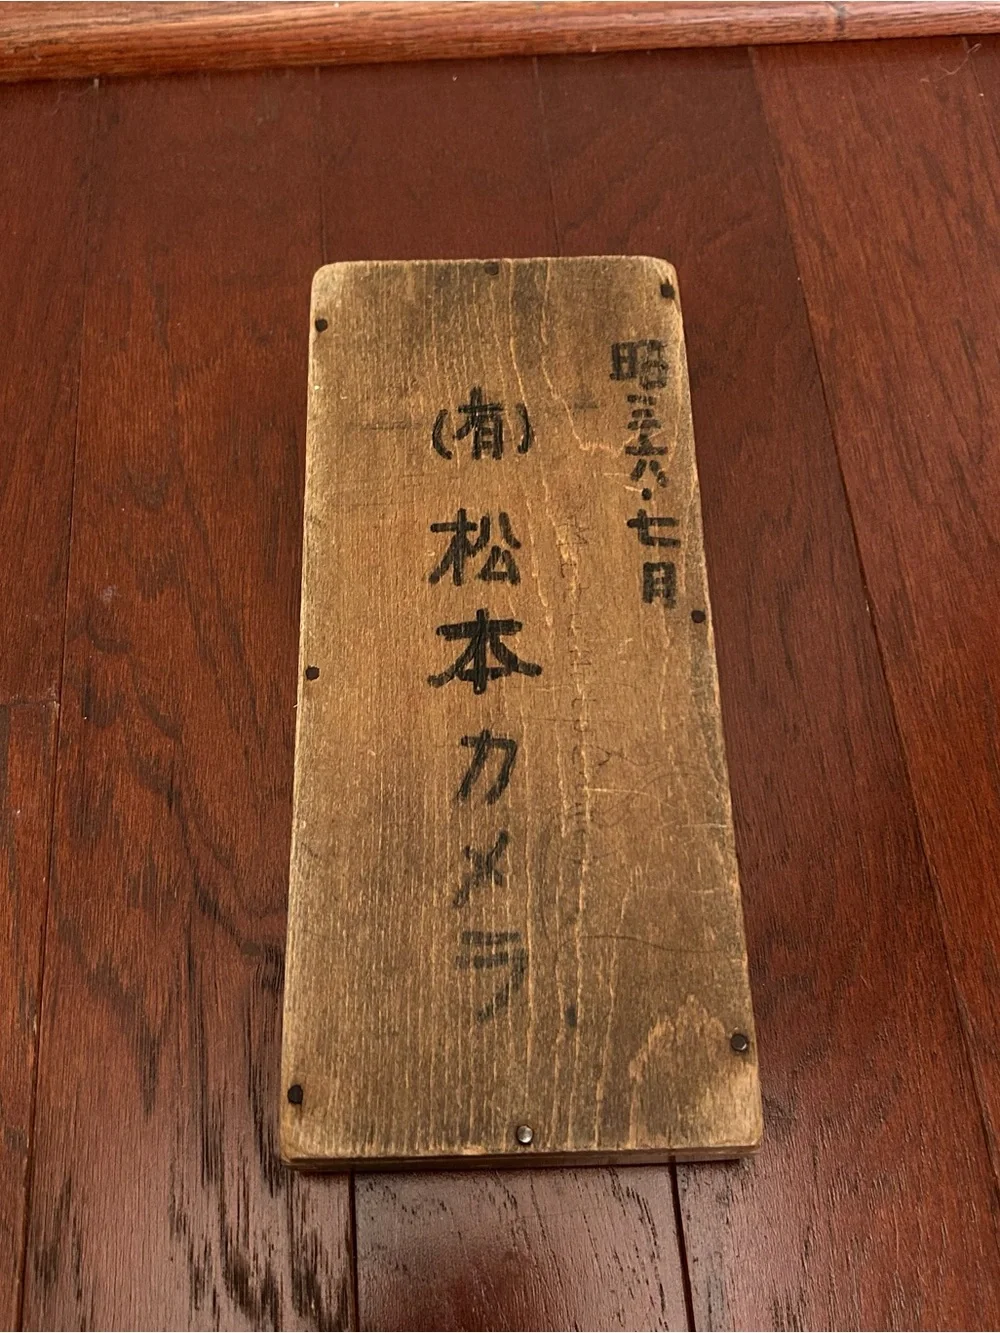 昭三六・七月
(有)松本カメラ